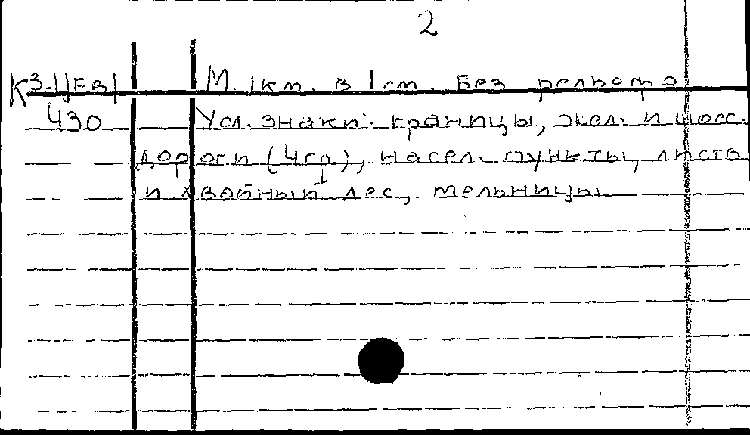 2
К3-1/Ев1 М. 1км. в 1см. Без рельефа
430 Усл. знаки: границы, жел. и шосс.
дороги (4гр), насел. пункты, листв.
и хвойный лес, мельницы